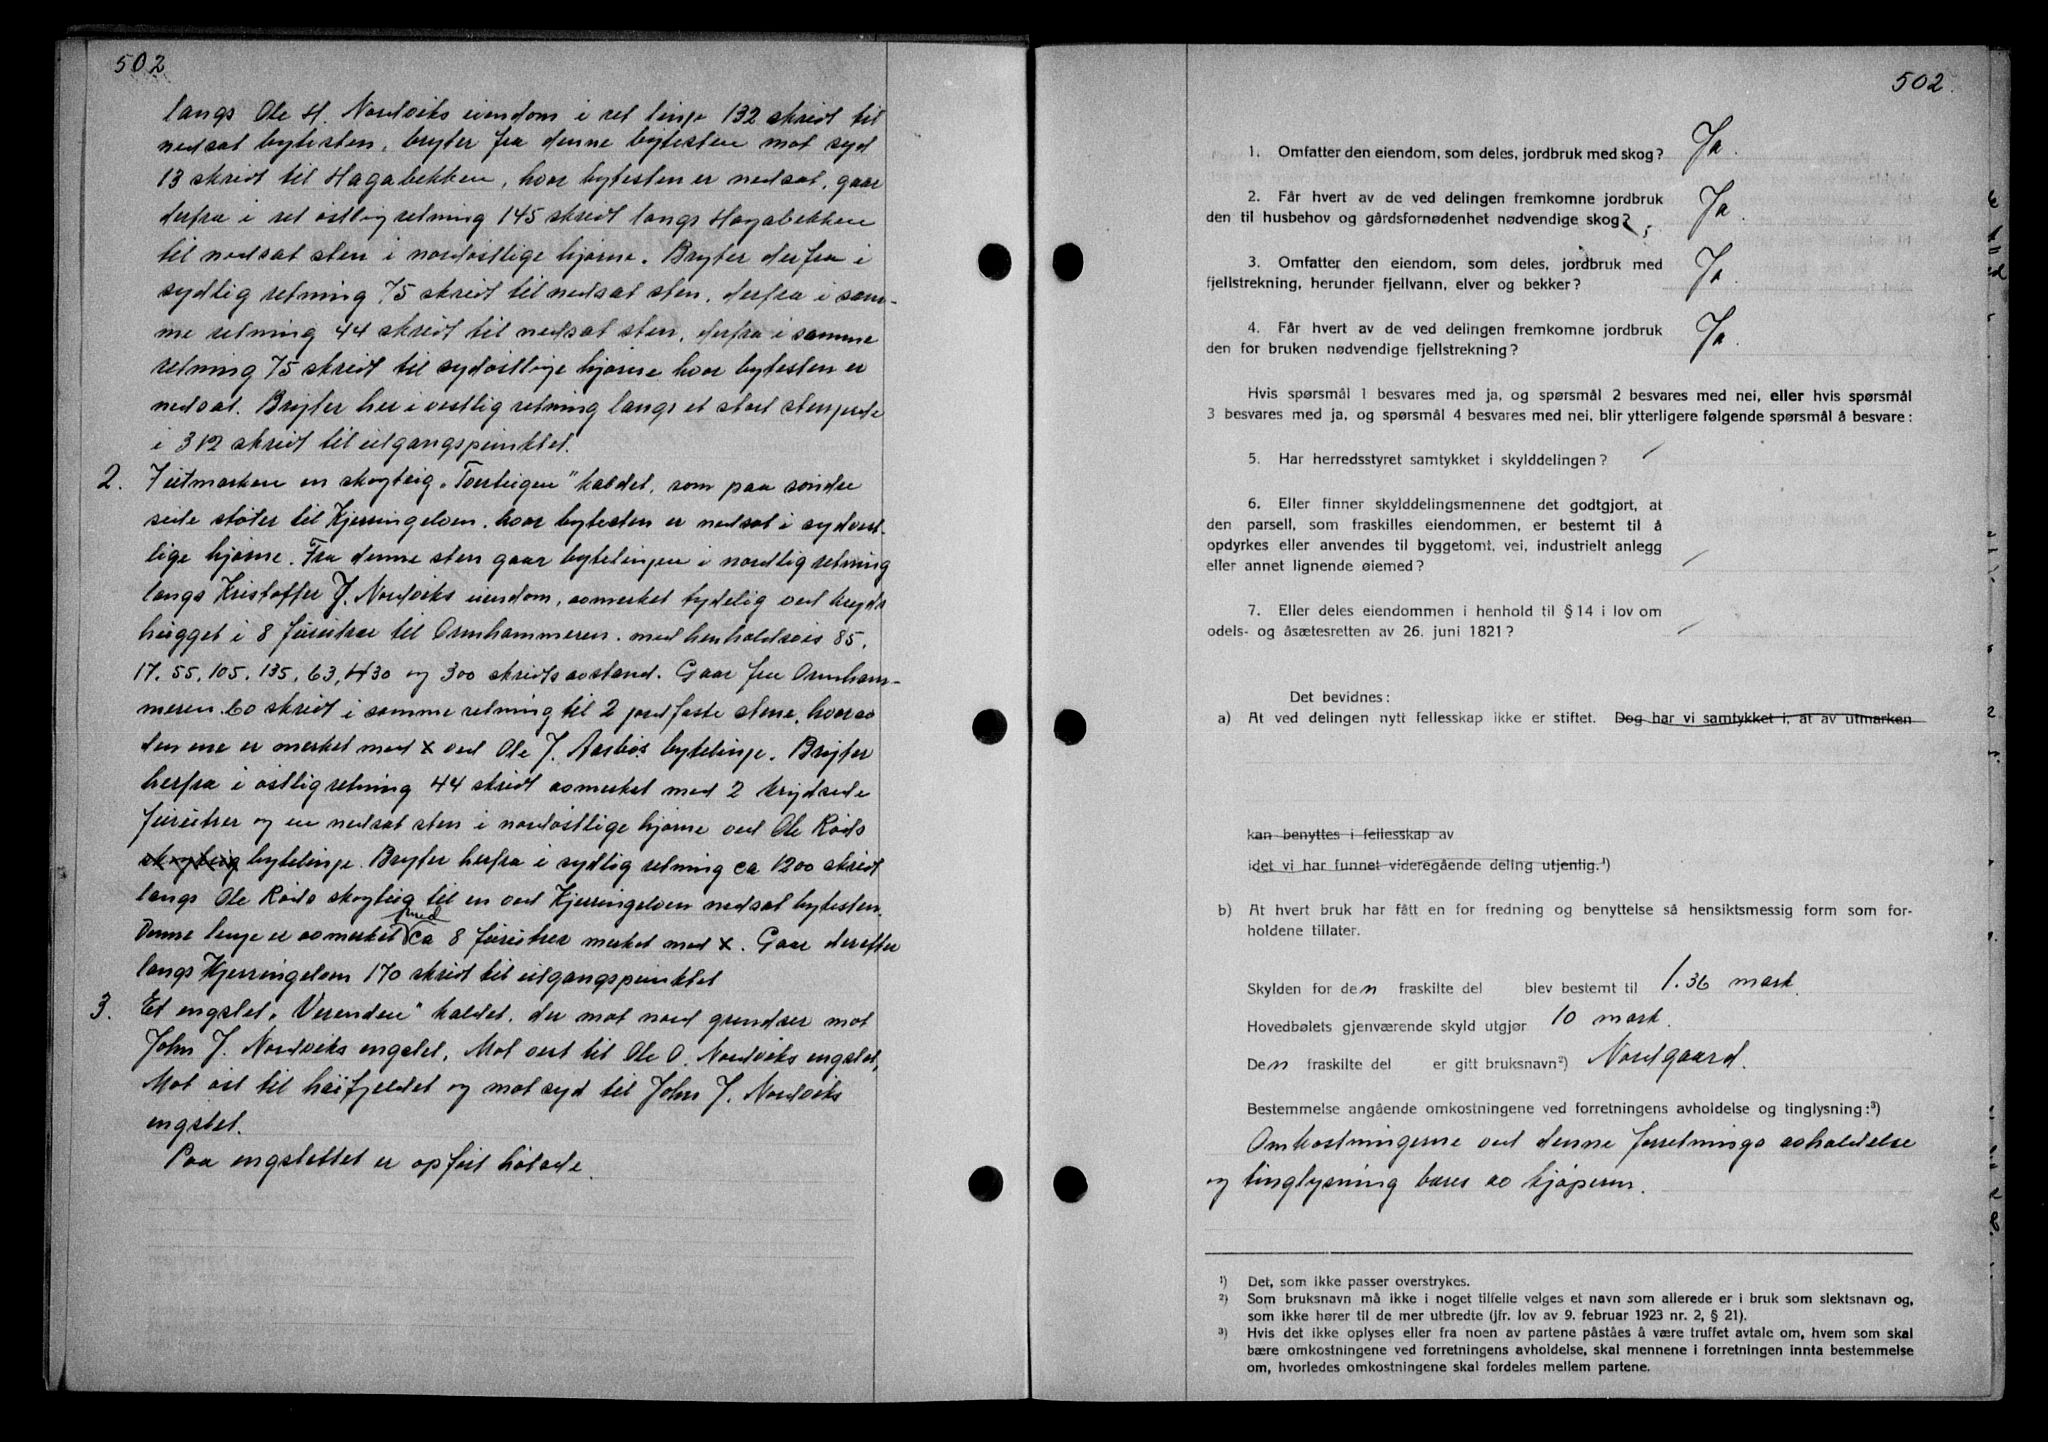 502
langs Ole H. Nordviks eiendom i ret linje 132 skridt til
nedsat bytesten, bryter fra denne bytesten mot syd
13 skridt til Hagabekken, hvor bytesten er nedsat, gaar
derfra i ret østlig retning 145 skridt langs Hagabekken
til nedsat sten i nordøstlige hjørne. Bryter derfra i
sydlig retning 75 skridt til nedsat sten, derfra i sam-
me retning 44 skridt til nedsat sten, derfra i samme
retning 75 skridt til sydøstlige hjørne hvor bytesten er
nedsat. Bryter her i vestlig retning langs et stort stengjerde
i 312 skridt til utgangspunktet.
2. I utmarken en skogteig „Torsteigen" kaldet, som paa søndre
side støter til Kjerringelven, hvor bytesten er nedsat i sydvest-
lige hjørne. Fra denne sten gaar bytelinjen i nordlig retning
langs Kristoffer J. Nordviks eiendom, avmerket tydelig ved kryds
hugget i 8 furutrær til Ørnhammeren, med henholdsvis 85,
17, 55, 105, 135, 63, 430 og 300 skridts avstand. Gaar fra Ørnham-
meren 60 skridt i samme retning til 2 jordfaste stene, hvorav
den ene er merket med x ved Ole J. Aasbøs bytelinje. Bryter
herfra i østlig retning 44 skridt avmerket med 2 krydsede
furutrær og en nedsat sten i nordøstlige hjørne ved Ole Røds
skogteig bytelinje. Bryter herfra i sydlig retning ca 1200 skridt
langs Ole Røds skogteig til en ved Kjerringelven nedsat bytesten.
Denne linje er avmerket med ca 8 furutrær merket med x. Gaar derefter
langs Kjerringelven 170 skridt til utgangspunktet
3. Et engslet „Verenden" kaldet, der mot nord grendser mot
John J. Nordviks engslet, Mot vest til Ole O. Nordviks engslet,
Mot øst til høifjeldet og mot syd til John J. Nordviks
engslet.
Paa engslettet er opført høløde.
502.
1. Omfatter den eiendom, som deles, jordbruk med skog? Ja.
2. Får hvert av de ved delingen fremkomne jordbruk
den til husbehov og gårdsfornødenhet nødvendige skog? Ja.
3. Omfatter den eiendom, som deles, jordbruk med
fjellstrekning, herunder fjellvann, elver og bekker? Ja.
4. Får hvert av de ved delingen fremkomne jordbruk
den for bruken nødvendige fjellstrekning? Ja.
Hvis spørsmål 1 besvares med ja, og spørsmål 2 besvares med nei, eller hvis spørsmål
3 besvares med ja, og spørsmål 4 besvares med nei, blir ytterligere følgende spørsmål å besvare:
5. Har herredsstyret samtykket i skylddelingen?
6. Eller finner skylddelingsmennene det godtgjort, at
den parsell, som fraskilles eiendommen, er bestemt til å
opdyrkes eller anvendes til byggetomt, vei, industrielt anlegg
eller annet lignende øiemed?
7. Eller deles eiendommen i henhold til § 14 i lov om
odels- og åsætesretten av 26. juni 1821?
Det bevidnes:
a) At ved delingen nytt fellesskap ikke er stiftet. Dog har vi samtykket i, at av utmarken
kan benyttes i fellesskap av
idet vi har funnet videregående deling utjenlig.¹)
b) At hvert bruk har fått en for fredning og benyttelse så hensiktsmessig form som for-
holdene tillater.
Skylden for den fraskilte del blev bestemt til 1.36 mark.
Hovedbølets gjenværende skyld utgjør 10 mark.
Den fraskilte del er gitt bruksnavn²) Nordgaard.
Bestemmelse angående omkostningene ved forretningens avholdelse og tinglysning:³)
Omkostningerne ved denne forretnings avholdelse
og tinglysning bæres av kjøperen.
¹) Det, som ikke passer overstrykes.
²) Som bruksnavn må ikke i noget tilfelle velges et navn som allerede er i bruk som slektsnavn og,
som ikke hører til de mer utbredte (jfr. lov av 9. februar 1923 nr. 2, § 21).
³) Hvis det ikke oplyses eller fra noen av partene påståes å være truffet avtale om, hvem som skal
bære omkostningene ved forretningens avholdelse, skal mennene i forretningen innta bestemmelse
om, hvorledes omkostningene skal fordeles mellem partene.